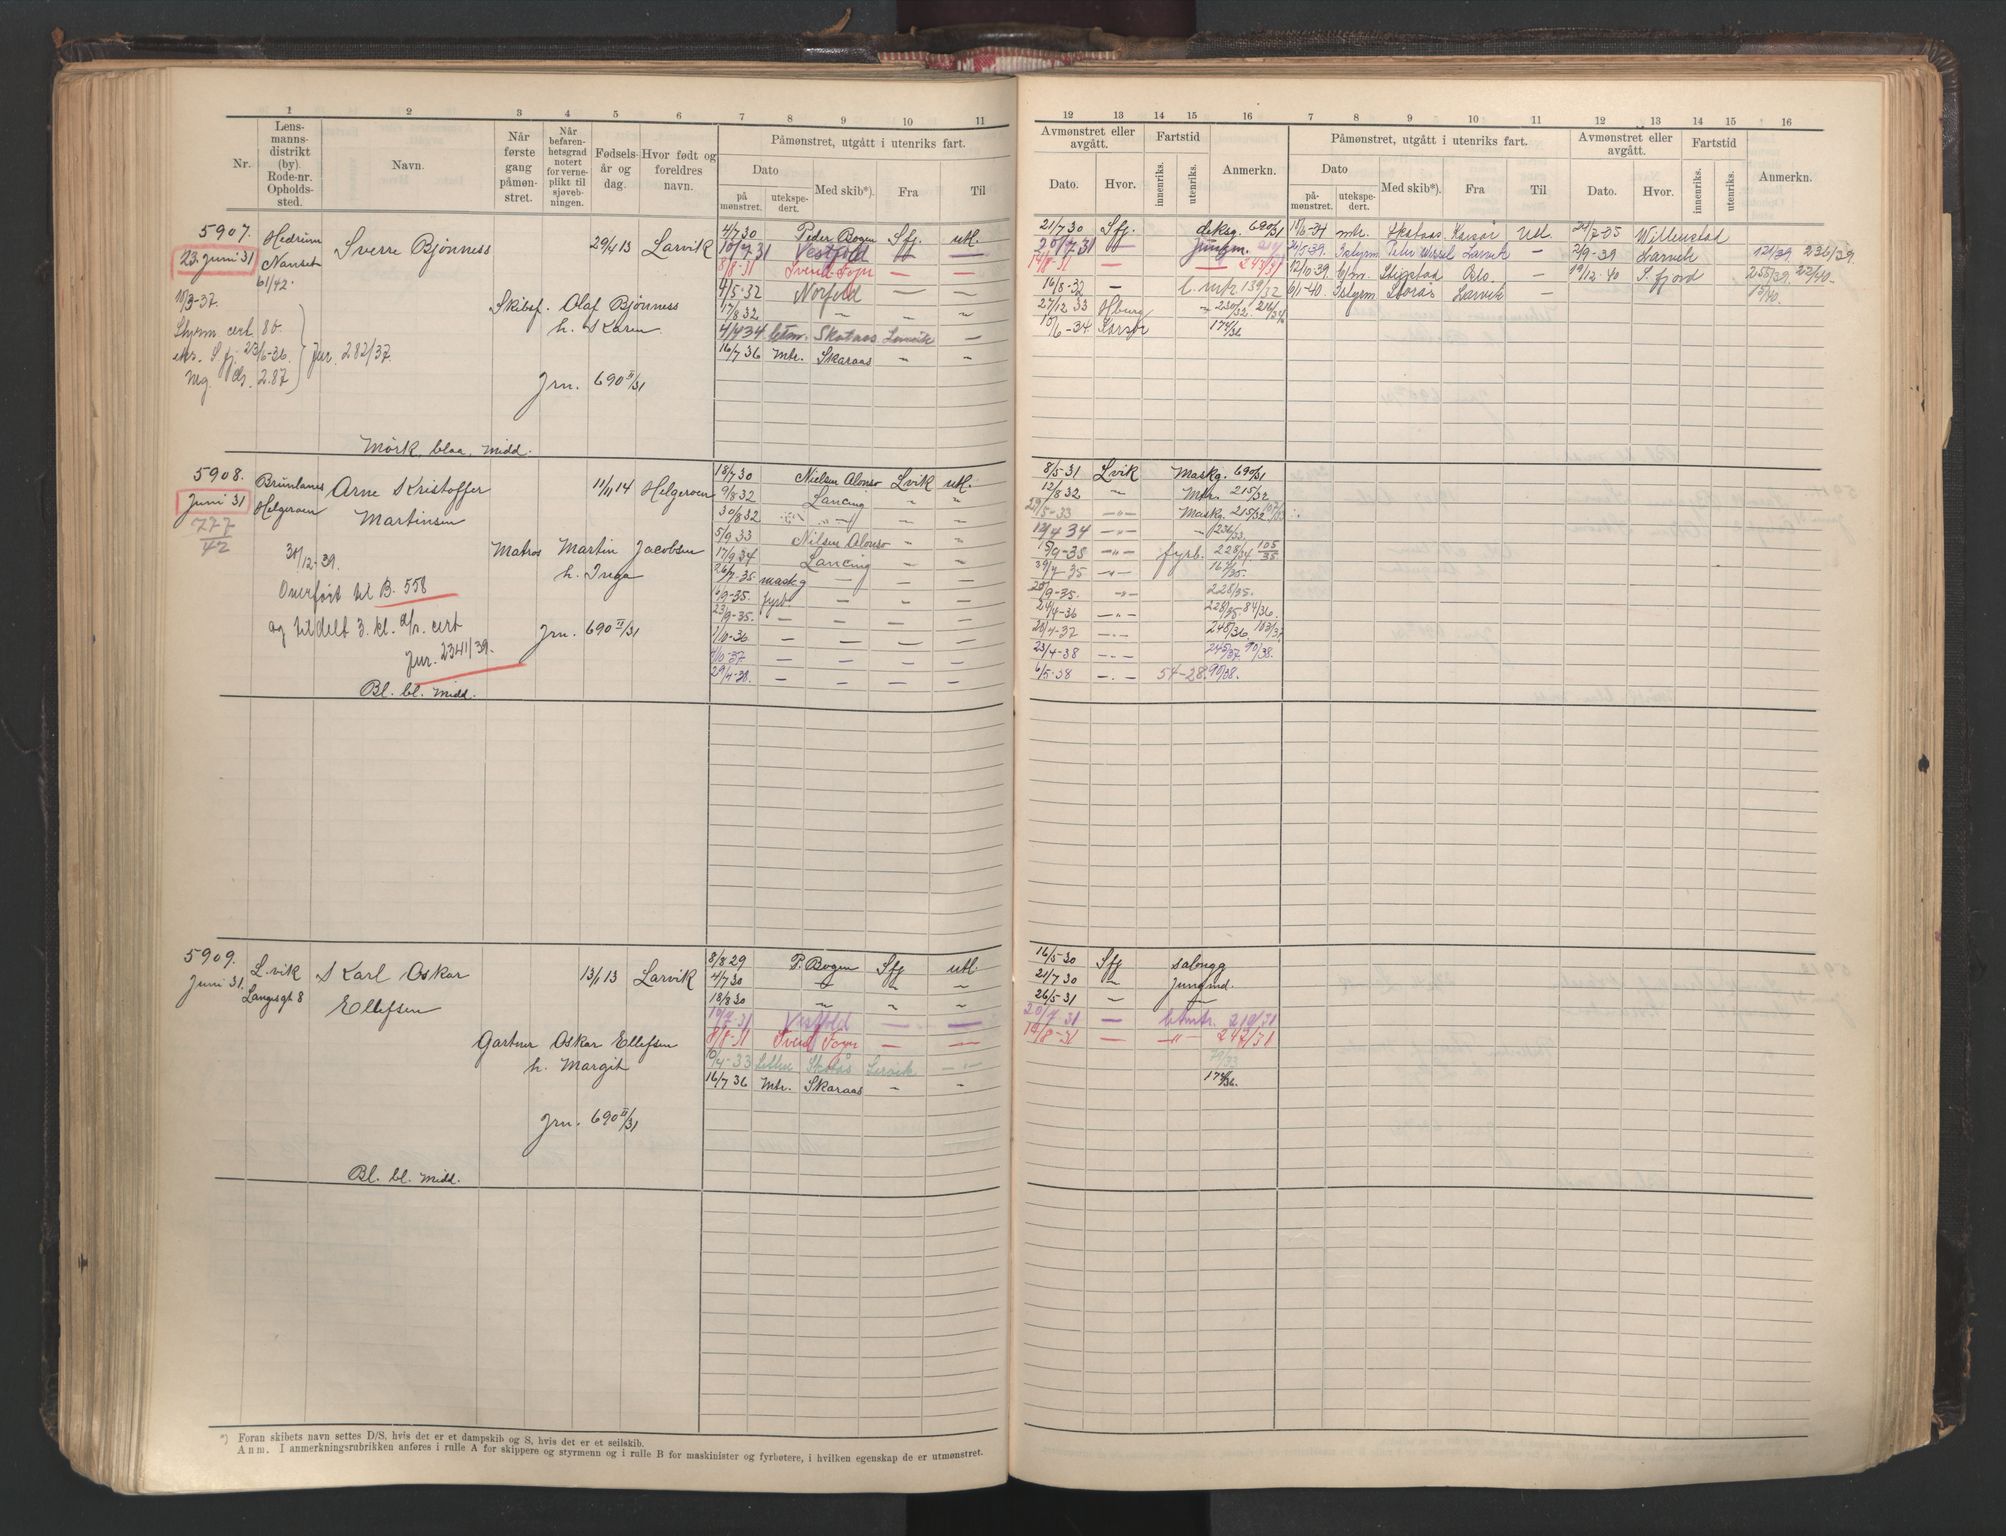 1 2 3 4 5 6 7 8 9 10 11
Nr.
Lens-
manns-
distrikt
(by).
Rode-nr.
Opholds-
sted.
Navn.
Når
første
gang
påmøn-
stret.
Når
befaren-
hetsgrad
notert
for verne-
plikt til
sjøveb-
ningen.
Fødsels-
år og
dag.
Hvor født og
foreldres
navn.
Påmønstret, utgått i utenriks fart.
Dato
på
mønstret.
utekspe-
dert.
Med skib*).
Fra
Til
5907.
23. Juni 31
Hedrum
Nanset
61/42.
Sverre Bjönness
29/4 13
Larvik
Skibsf. Olaf Bjönness
h. Karen.
10/3-37.
Styrm. cert. 80.
eks. Sfj. 23/6-36.
Jur. 282/37.
Jrn. 690 II/31
Mørk, blaa, midd.
4/7 30 Peder Bogen Sfj. utl.
10/7 31 Vestfold — —
8/8-31 Svend Foyn — —
4/5-32 Norfold — —
17/8 32 〃 〃 〃
4/4 34 Skataas Larvik —
16/7 36 Mtr. Skaraas 〃 〃
5908.
Juni 31
777/42
Brunlanes
Helgeroen
Arne Kristoffer
Martinsen
11/11 14
Helgeroen
Matros Martin Jacobsen
h. Inga
30/12-39.
Overført til B. 558
og tildelt 3. kl. cert
Jur. 2341/39.
Jrn. 690 II/31
Bl. bl. midd.
18/7 30 Nielsen Alonso Lvik utl.
9/8 32 Lancing 〃 〃
30/8 32 〃 〃 〃
5/9 33 Nilsen Alonso 〃 〃
17/9 34 Lancing 〃 〃
26/7-35 maskg — — —
4/9-35. fyrb. — — —
23/9-35. — — —
1/10-36 — — —
1/10-37 — — —
29/4-38. — — —
5909.
Juni 31.
L.vik
Langesgt 8
Karl Oskar
Ellefsen
13/1 13
Larvik
Gartner Oskar Ellefsen
h. Margit
Jrn. 690 II/31
Bl. bl. midd.
8/8 29 P. Bogen Sfj utl.
4/7 30 — 〃 〃
18/8 30 〃 〃 〃
10/7 31 Vestfold — —
8/8-31 Svend Foyn — —
10/4-33 Skataas Larvik — 〃 —
16/7 36 Mtr. Skaraas 〃 〃
*) Foran skibets navn settes D/S, hvis det er et dampskib og S, hvis det er et seilskib.
Anm. I anmerkningsrubrikken anføres i rulle A for skippere og styrmenn og i rulle B for maskinister og fyrbøtere, i hvilken egenskap de er utmønstret.
12 13 14 15 16 7 8 9 10 11 12 13 14 15 16
Avmønstret eller
avgått.
Dato.
Hvor.
Fartstid
innenriks.
utenriks.
Anmerkn.
Påmønstret, utgått i utenriks fart.
Dato
på-
mønstret.
utekspe-
dert.
Med skib*).
Fra
Til
Avmønstret eller
avgått.
Dato.
Hvor.
Fartstid
innenriks.
utenriks.
Anmerkn.
21/7 30 Sfj. deksg. 690/31
20/7 31 — Jungm.
14/8-31 — — 242/31
16/8-32 — l. mtr 139/32
27/12 33 Hburg 〃 230/32.
10/6-34 Korsør 174/36
10/6-34 mtr. Skataas Korsør Utl 24/7-35 Willemstad
24/5-39. 3styrm Peter Wessel Larvik — 2/9-39 Larvik 121/39 236/39.
12/10 39. Skigstad Oslo — 19/12-40 S.fjord 255/39. 22/40.
6/1-40. 3styrm Storås Larvik — 15/40.
8/5-31 Lvik Maskg. 690/31
12/8 32 〃 Mtr. 215/32
29/5-33 〃 Maskg. 215/32 107/33
12/4 34 〃 〃 236/33.
15/9-35 〃 fyrb. 228/34 105/35
〃 167/35.
20/9-35. 〃 228/35.
24/4-36 〃 228/35. 84/36.
20/4-37 〃 248/36. 103/37
23/4-38 〃 245/37. 90/38.
6/5-38 〃 54-28. 90/38.
16/5-30 Sfj salongg
21/7 30 〃 Jungmd.
26/5 31 〃 〃
20/7 31 — letmtr. 219/31
14/8-31 — 〃 — 242/31
79/33
174/36.